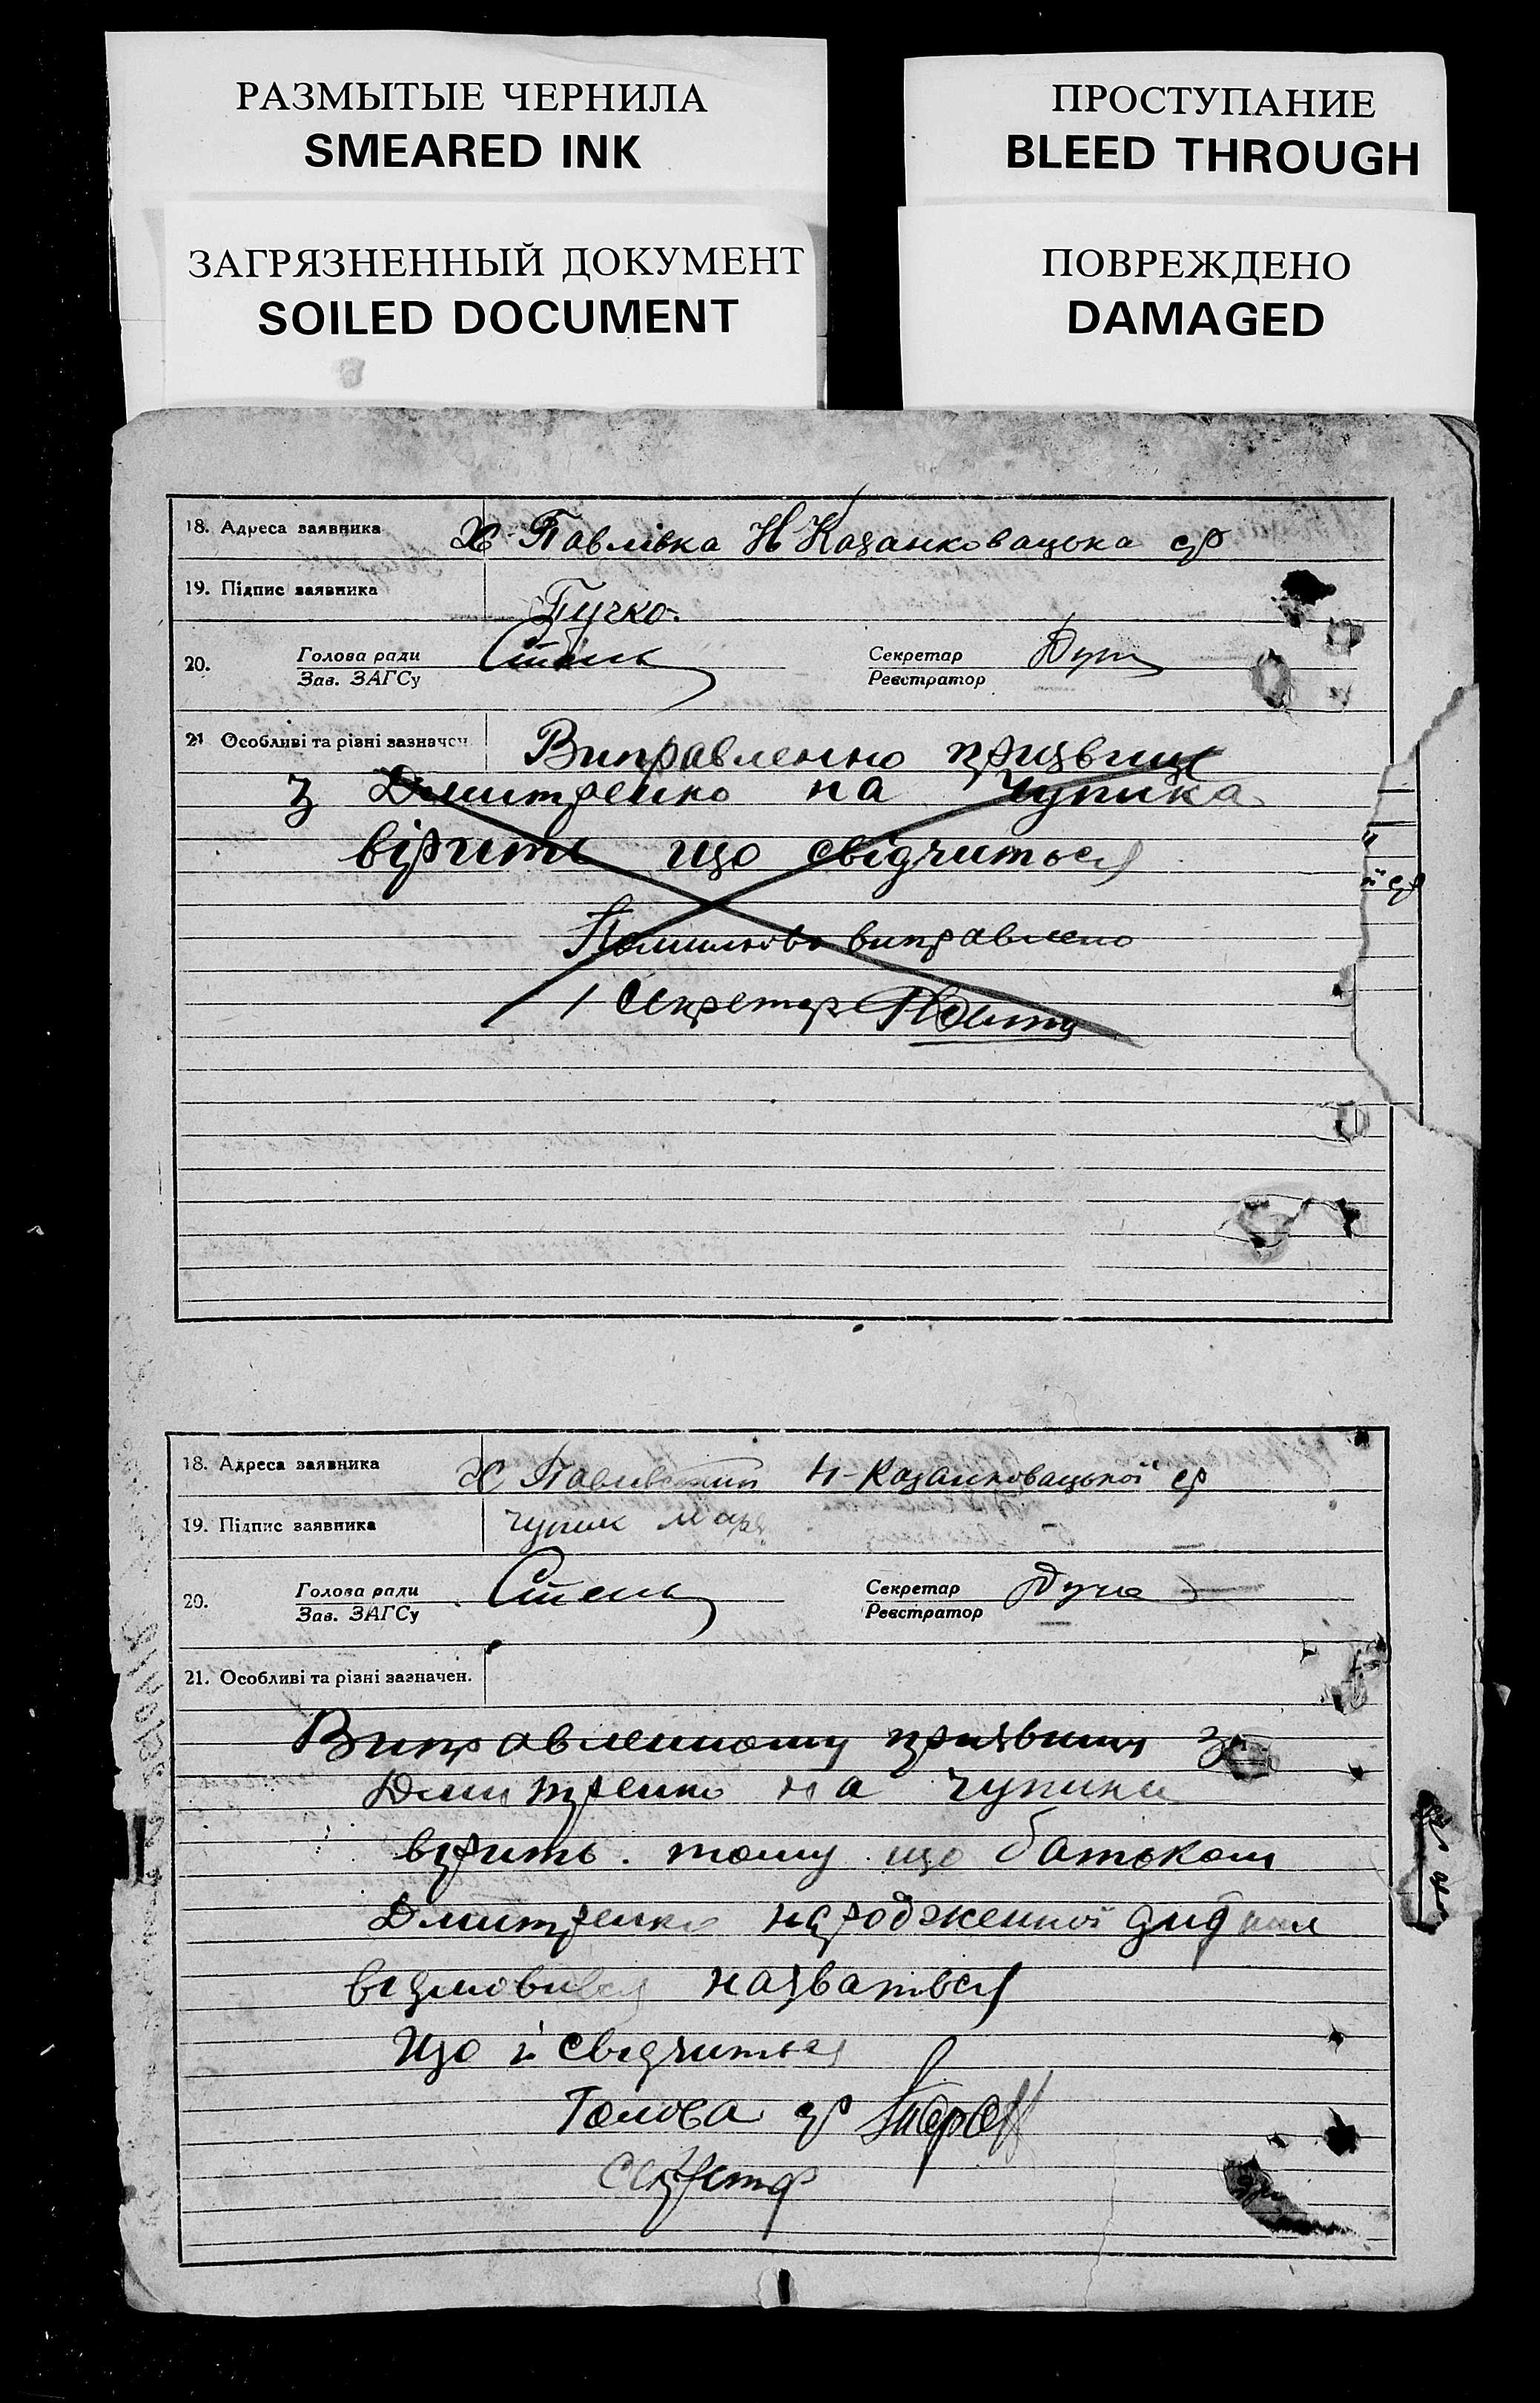 РАЗМЫТЫЕ ЧЕРНИЛА
SMEARED INK
ПРОСТУПАНИЕ
BLEED THROUGH
ЗАГРЯЗНЕННЫЙ ДОКУМЕНТ
SOILED DOCUMENT
ПОВРЕЖДЕНО
DAMAGED
18. Адреса заявника Х Павлівка Н Казанковацька ср
19. Підпис заявника Пучко.
20. Голова ради Секретар
Зав. ЗАГСу Реєстратор
21 Особливі та різні зазначен. Виправленно призвище
З Дмитренко на Чупика
вірить що свідчиться
Помилково виправлено
Секретар
18. Адреса заявника Х Н-Казанковацької ср
19. Підпис заявника Чупик
20. Голова ради Секретар
Зав. ЗАГСу Реєстратор
21. Особливі та різні зазначен.
Виправленному призвищу з
Дмитренко на чупика
вірить. тому що батьком
Дмитренко народженної
відмовився назваться
Що і свідчиться
Голова ср
Секретар